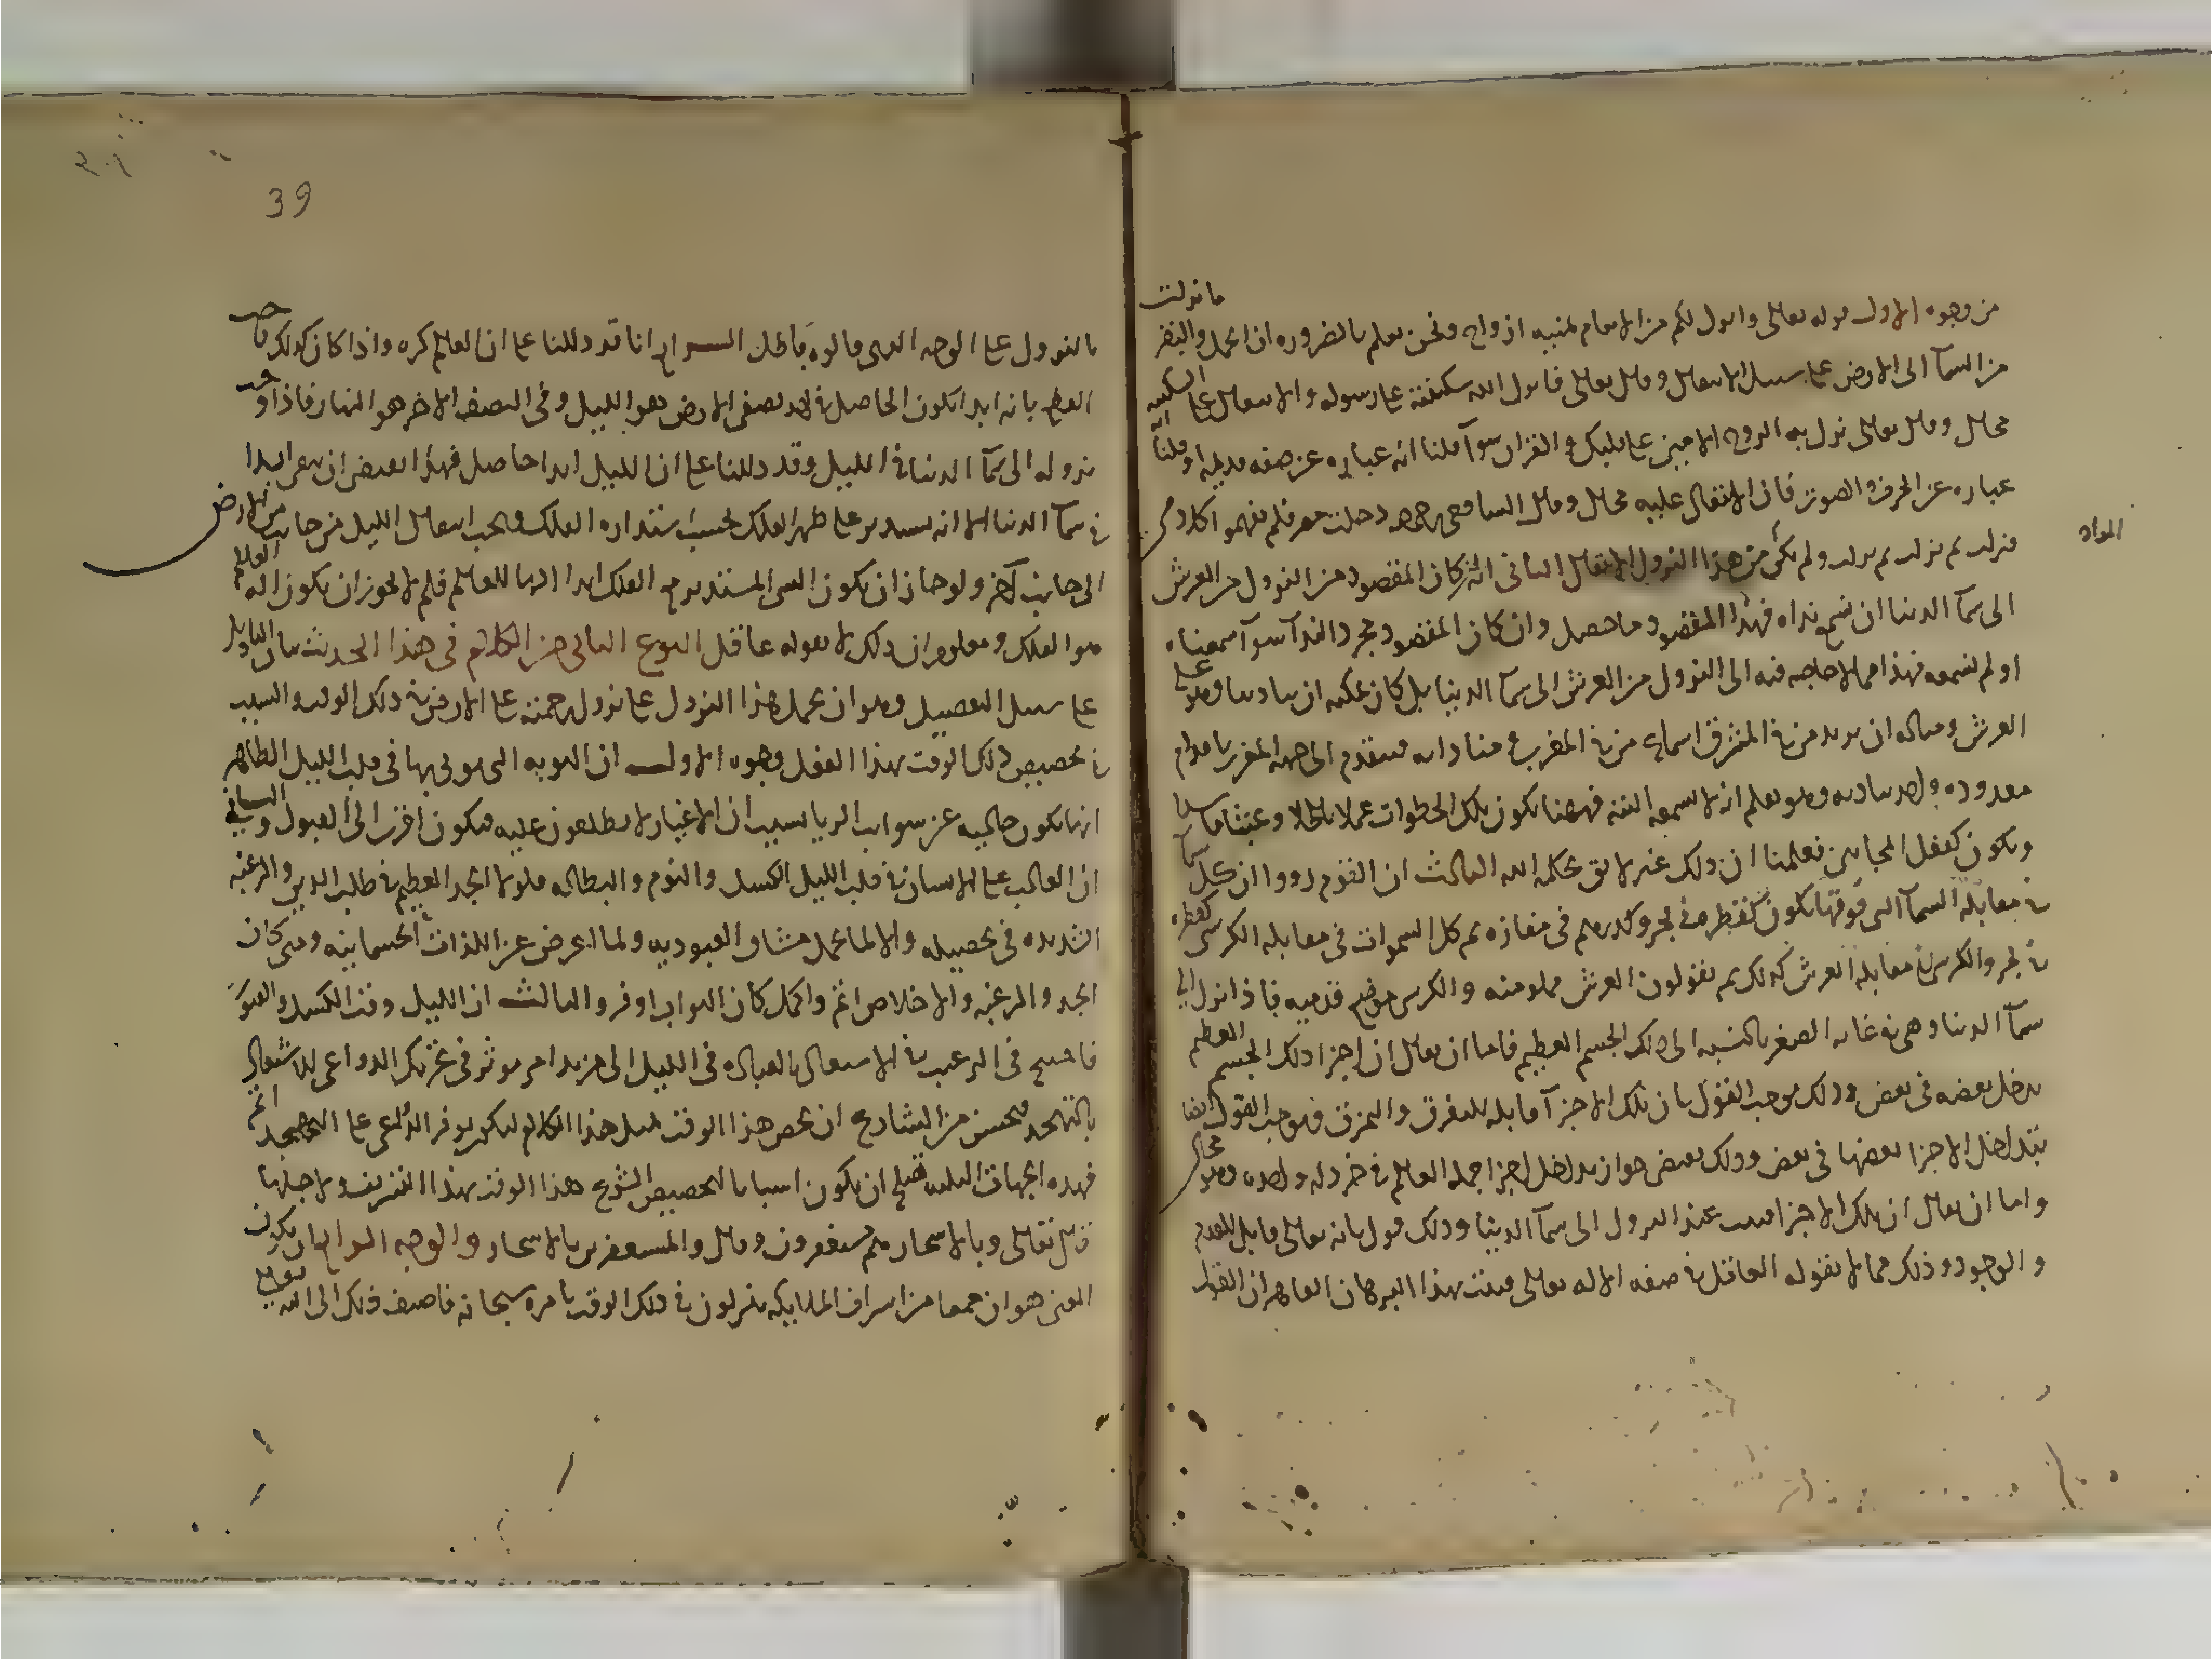 من وجوه الاول قوله تعالى وانزل لكم من الانعام ثمنيه ازواج ونحن نعلم بالضروره ان الجمل والبقر ما نزلت
من السما الى الارض على سبيل الانتقال وقال تعالى فانزل الله سكينته على رسوله والانتقال على السكينه
محال وقال تعالى نزل به الروح الامين على قلبك والقران سوآ قلنا انه عباره عن صفه قديمه او قلنا انه
عباره عن الحرف والصوت فان الانتقال عليه محال وقال الشافعي رحمه دخلت مصر فلم يفهموا كلامي
فنزلت ثم نزلت ثم نزلت ولم يكن من هذا النزول الانتقال الثاني انه ان كان المقصود من النزول من العرش
المراد
الى سمآ الدنيا ان نسمع نداه فهذا المقصود ما حصل وان كان المقصود مجرد الندآ سوآ سمعناه
او لم نسمعه فهذا مما لا حاجه فيه الى النزول من العرش الى سمآ الدنيا بل كان يمكنه ان ينادينا وهو على
العرش ومثاله ان يريد من في المشرق اسماع من في المغرب ومناداته فيتقدم الى جهه المغرب باقدام
معدوده ولحد يناديه وهو يعلم انه لا يسمعه البته فههنا تكون تلك الخطوات عملا باطلا وعبثا فاسدا
ويكون كفعل المجانين فعلمنا ان ذلك غير لايق بحكمه الله الثالث ان القوم رووا ان كل سمآ
في مقابله السمآ التى فوقها تكون كقطره في بحر وكدرهم في مفازه ثم كل السموات في مقابله الكرسى كقطره
في بحر والكرسى في مقابله العرش كذلك ثم يقولون العرش مملو منه والكرسى موضع قدميه فاذا نزل الى
سمآ الدنيا وهى في غايه الصغر بالنسبه الى ذلك الجسم العظيم فاما ان يقال ان اجزا ذلك الجسم العظيم
يدخل بعضه في بعض وذلك يوجب القول بان تلك الاجزآ قابله للتفرق والتمزق ويوجب القول ايضا
بتداخل الاجزا بعضها في بعض وذلك يقتضى جواز تداخل اجزا جمله العالم في خردله واحده وهو محال
واما ان يقال ان تلك الاجزا فنيت عند النزول الى سمآ الدنيا وذلك قول بانه تعالى قابل للعدم
والوجود وذلك مما لا يقوله العاقل في صفه الاله تعالى فثبت بهذا البرهان القاهر ان القول
39
بالنزول على الوجه الذى قالوه باطل الرابع انا قد دللنا على ان العالم كره واذا كان كذلك وجب
القطع بانه ابدا يكون الحاصل في احد نصفى الارض هو الليل وفى النصف الاخر هو النهار فاذا وجب
نزوله الى سمآ الدنيا في الليل وقد دللنا على ان الليل ابدا حاصل فهذا يقتضى ان يبقى ابدا
في سمآ الدنيا الا انه يستدير على ظهر الفلك بحسب استداره الفلك وبحسب انتقال الليل من جانب من الارض
الى جانب آخر ولو جاز ان يكون الشى المستدير مع الفلك ابدا الها للعالم فلم لا يجوز ان يكون اله العالم
هو الفلك ومعلوم ان ذلك لا يقوله عاقل النوع الثانى من الكلام فى هذا الحديث بيان التاويل
على سبيل التفصيل وهو ان يحمل هذا النزول على نزول رحمته على الارض في ذلك الوقت والسبب
في تخصيص ذلك الوقت بهذا الفعل وجوه الاول ان التوبه التى يوتى بها فى قلب الليل الظاهر
انها تكون خاليه عن شوايب الريا بسبب ان الاغيار لا يطلعون عليه فتكون اقرب الى القبول والثاني
ان الغالب على الانسان في قلب الليل الكسل والنوم والبطاله فلولا الجد العظيم في طلب الدين والرغبه
الشديده فى تحصيله والا لما تحمل مشاق العبوديه ولما اعرض عن اللذات الجسمانيه ومتى كان
الجد والرغبه والاخلاص اتم واكمل كان الثواب اوفر والثالث ان الليل وقت الكسل والفتور
فاحتيج فى الترغيب في الاشتغال بالعباده فى الليل الى مزيد امر موثر فى تحريك الدواعى للاشتغال
بالتهجد فيحسن من الشارع ان يخص هذا الوقت بمثل هذا الكلام ليكون توفر الدواعى على التهجد اتم
فهذه الجهات الثلثه تصلح ان تكون اسبابا لتخصيص الشرع هذا الوقت بهذا التشريف ولاجلها
قال تعالى وبالاسحار هم يستغفرون وقال والمستغفرين بالاسحار والوجه الرابع ان يكون
المعنى هو ان جمعا من اشراف الملايكه ينزلون في ذلك الوقت بامره سبحانه فاضيف ذلك الى الله تعالى